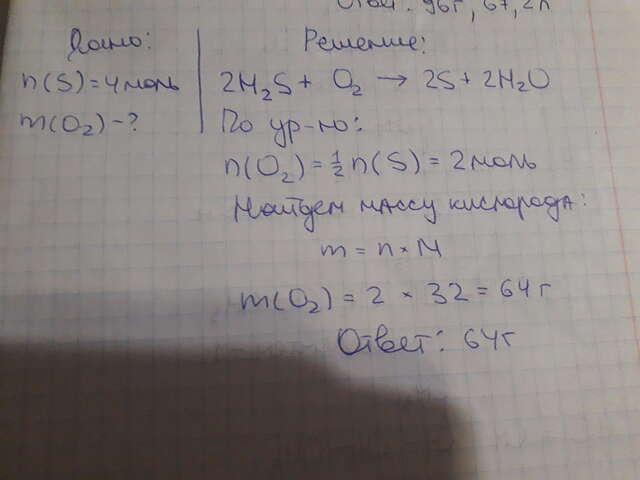 Ответ: 96г, 67,2л
Дано:
n(S)=4моль
m(O₂)-?
Решение:
2H₂S + O₂ → 2S + 2H₂O
По ур-ю:
n(O₂) = ½ n(S) = 2моль
Найдем массу кислорода:
m = n × M
m(O₂) = 2 × 32 = 64г
Ответ: 64г